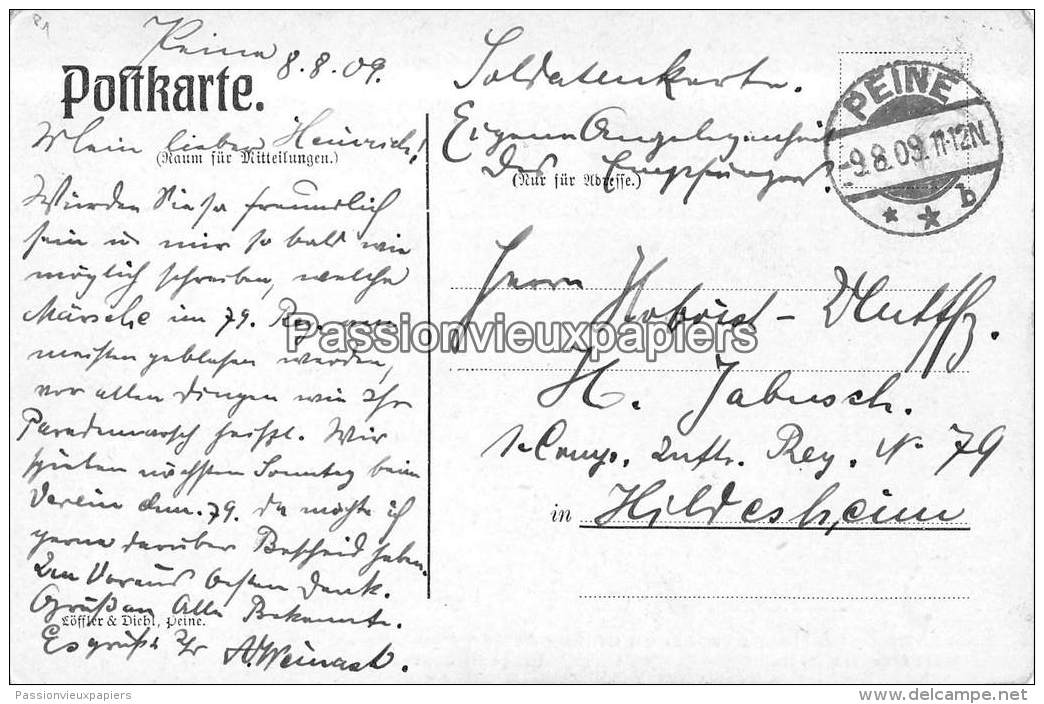 Peine
8.8.09.
Postkarte.
Mein lieber Heinrich!
(Raum für Mitteilungen.)
Würden Sie so freundlich
sein u. mir so bald wie
möglich schreiben, welche
Märsche im 79. Reg. am
meisten geblasen werden,
vor allen Dingen wie Ihr
Parademarsch heißt. Wir
spielen nächsten Sonntag beim
Verein ehm. 79. da möchte ich
gerne darüber Bescheid haben.
Im Voraus besten Dank.
Gruß an Alle Bekannte.
Löffler & Diehl, Peine.
Es grüßt Ihr
Soldatenkarte.
Eigene Angelegenheit
des Empfängers.
(Nur für Adresse.)
PEINE
9.8.09. 11-12N.
* * b
Herrn Hoboist-
H. Jabusch.
Comp. Inftr. Reg. No 79
in Hildesheim
Passionvieuxpapiers
Passionvieuxpapiers
delcampe.net